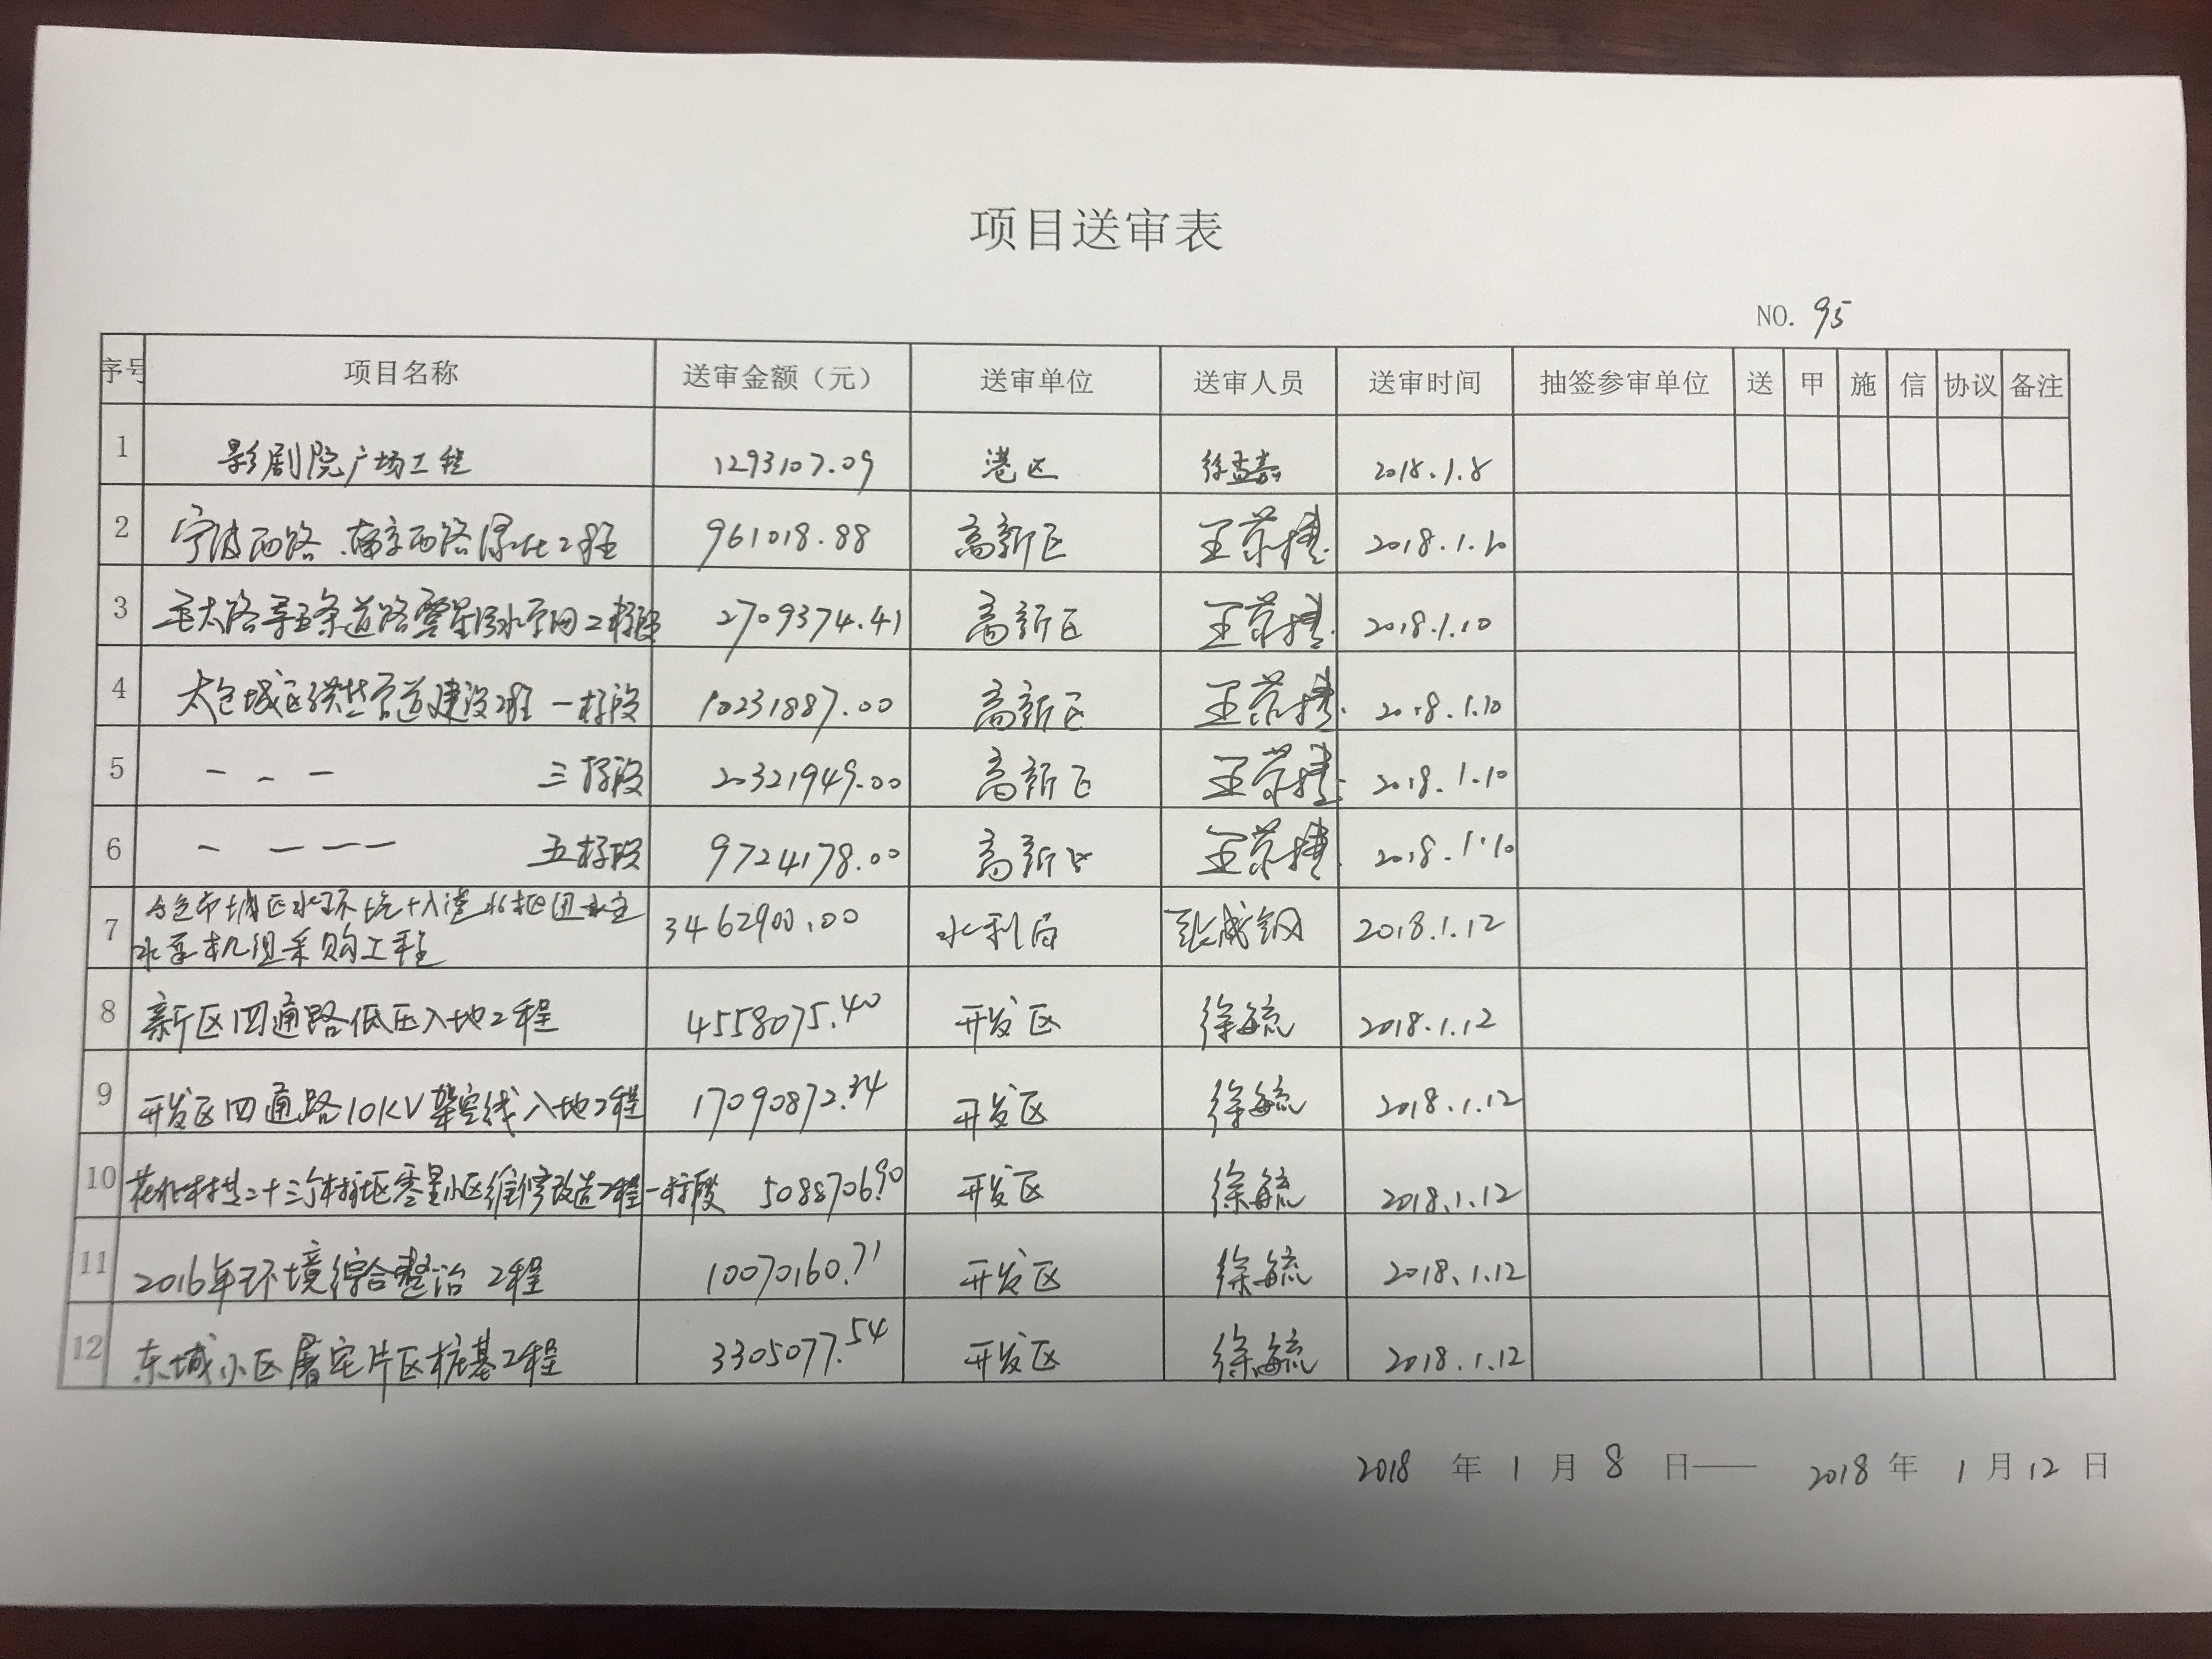 项目送审表
NO. 95
序号 项目名称 送审金额（元） 送审单位 送审人员 送审时间 抽签参审单位 送 甲 施 信 协议 备注
1 影剧院广场工程 1293107.09 港区 2018.1.8
2 宁波西路、南京西路绿化工程 961018.88 高新区 王荣捷 2018.1.10
3 太路等五条道路零星污水管网工程 标段 2709374.41 高新区 王荣捷 2018.1.10
4 太仓城区供热管道建设工程 一标段 10231887.00 高新区 王荣捷 2018.1.10
5 — — — 三标段 20321949.00 高新区 王荣捷 2018.1.10
6 — — — — 五标段 9724178.00 高新区 王荣捷 2018.1.10
7 太仓市城区水环境 枢纽 水泵机组采购工程 3462900.00 水利局 张威钢 2018.1.12
8 新区四通路低压入地工程 4558075.40 开发区 徐毓 2018.1.12
9 开发区四通路10KV架空线入地工程 17090872.34 开发区 徐毓 2018.1.12
10 花北村 二十三个村社区零星小区维修改造工程一标段 5088706.90 开发区 徐毓 2018.1.12
11 2016年环境综合整治工程 10070160.71 开发区 徐毓 2018.1.12
12 东城小区屠宅片区桩基工程 3305077.54 开发区 徐毓 2018.1.12
2018 年 1 月 8 日—— 2018 年 1 月 12 日